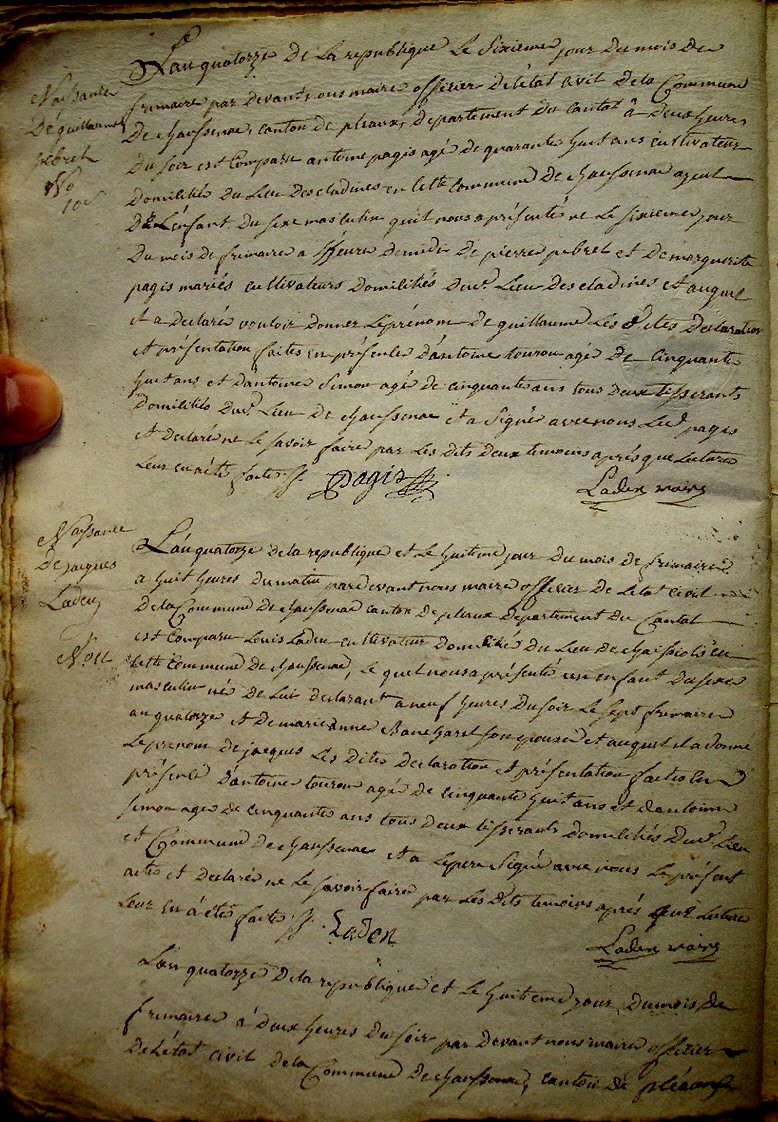 Naissance
De guillaume
pebrel
No
10
L'an quatorze De La republique Le Sixieme jour Du mois De
frimaire par devant nous maire officier De létat civil De la Commune
De chaussenac, canton de pleaux, Departement Du cantal à Deux heures
Du soir est Comparu antoine pagis agé de quarante huit ans cultivateur
Domicilié Du Lieu Descladines en cette Commune De chaussenac ayent
De L'enfant Du sexe masculin qu'il nous a présenté né Le sixieme jour
Du mois de frimaire a heure de midi De pierre pebrel et De marguerite
pagis mariés cultivateurs Domiciliés Dud. Lieu Descladines et auquel
il a Déclaré vouloir Donner Le prénom De guillaume Les dites Declaration
et présentation faites en présence D'antoine tourou agé De cinquante
huit ans et D'antoine Simon agé de cinquante ans tous Deux tisserants
Domiciliés Dud. Lieu De chaussenac et a Signé avec nous Led. pagis
et Declaré ne Le savoir faire par Les dits Deux temoins après que Lecture
Leur en a été faite
Pagis
Laden maire
Naissance
De jacques
Laden
No 11
L'an quatorze De la republique et Le huitieme jour Du mois de frimaire
a huit heures Du matin par devant nous maire officier De Létat Civil
De la Commune De chaussenac canton De pleaux Departement Du Cantal
est Comparu Louis Laden cultivateur Domicilié Du Lieu De chaissiolis en
cette Commune De chaussenac, Le quel nous a présenté un enfant Du sexe
masculin né De Lui Declarant a neuf heures Du soir Le sept frimaire
an quatorze et De marie anne son épouse et auquel il a donné
Le prenom De jacques Les Dites Declaration et présentation faites En
présence D'antoine tourou agé de cinquante huit ans et D'antoine
simon age De cinquante ans tous Deux tisserants Domiciliés Dud. Lieu
et Commune De chaussenac et a Le pere Signé avec nous Le présent
acte et Declaré ne Le savoir faire par Les Dits temoins après que Lecture
Leur En à été faite
Laden
Laden maire
L'an quatorze De la republique et Le huitieme jour Du mois De
frimaire à Deux heures Du soir par Devant nous maire officier
De Létat civil De la Commune De chaussenac, canton De pléaux